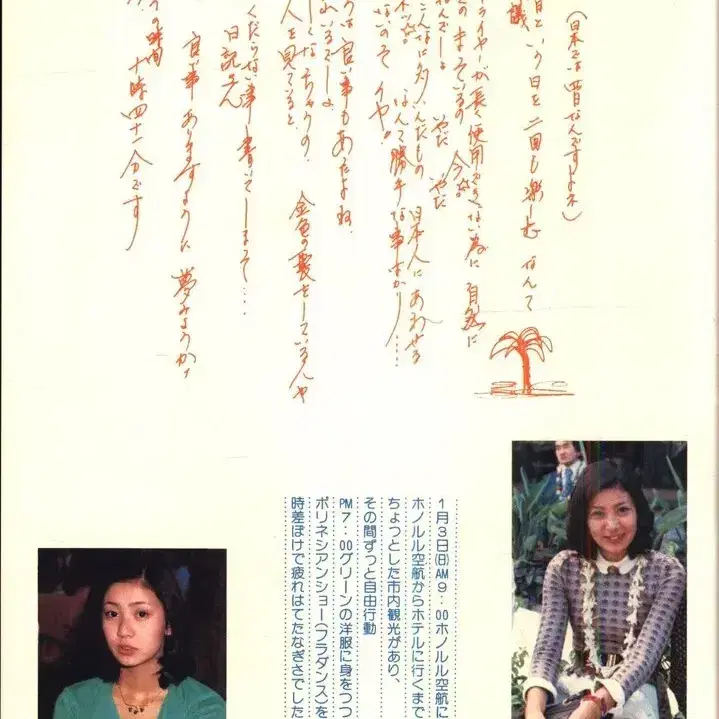 (日本では四日なんですよネ)
日という日を二回も楽しむなんて
議
ライヤーが長く使用できない為に自然に
なんでしょ やだ やだ
こんなに多いんだもの 日本人にあわせる
なんて勝手な事ばかり……
なのぞ イヤ!
は良い事もあったよね。
人を見ていると 金色の髪をしている人や
くだらない事書いてしまって……
日記さん
良い事ありますように 夢みようかナ
の時間 十時四十一分です
1月3日(日)AM9:00ホノルル空航に
ホノルル空航からホテルに行くまで
ちょっとした市内観光があり、
その間ずっと自由行動
PM7:00グリーンの洋服に身をつつ
ポリネシアンショー(フラダンス)を
時差ぼけで疲れはてたなぎさでした